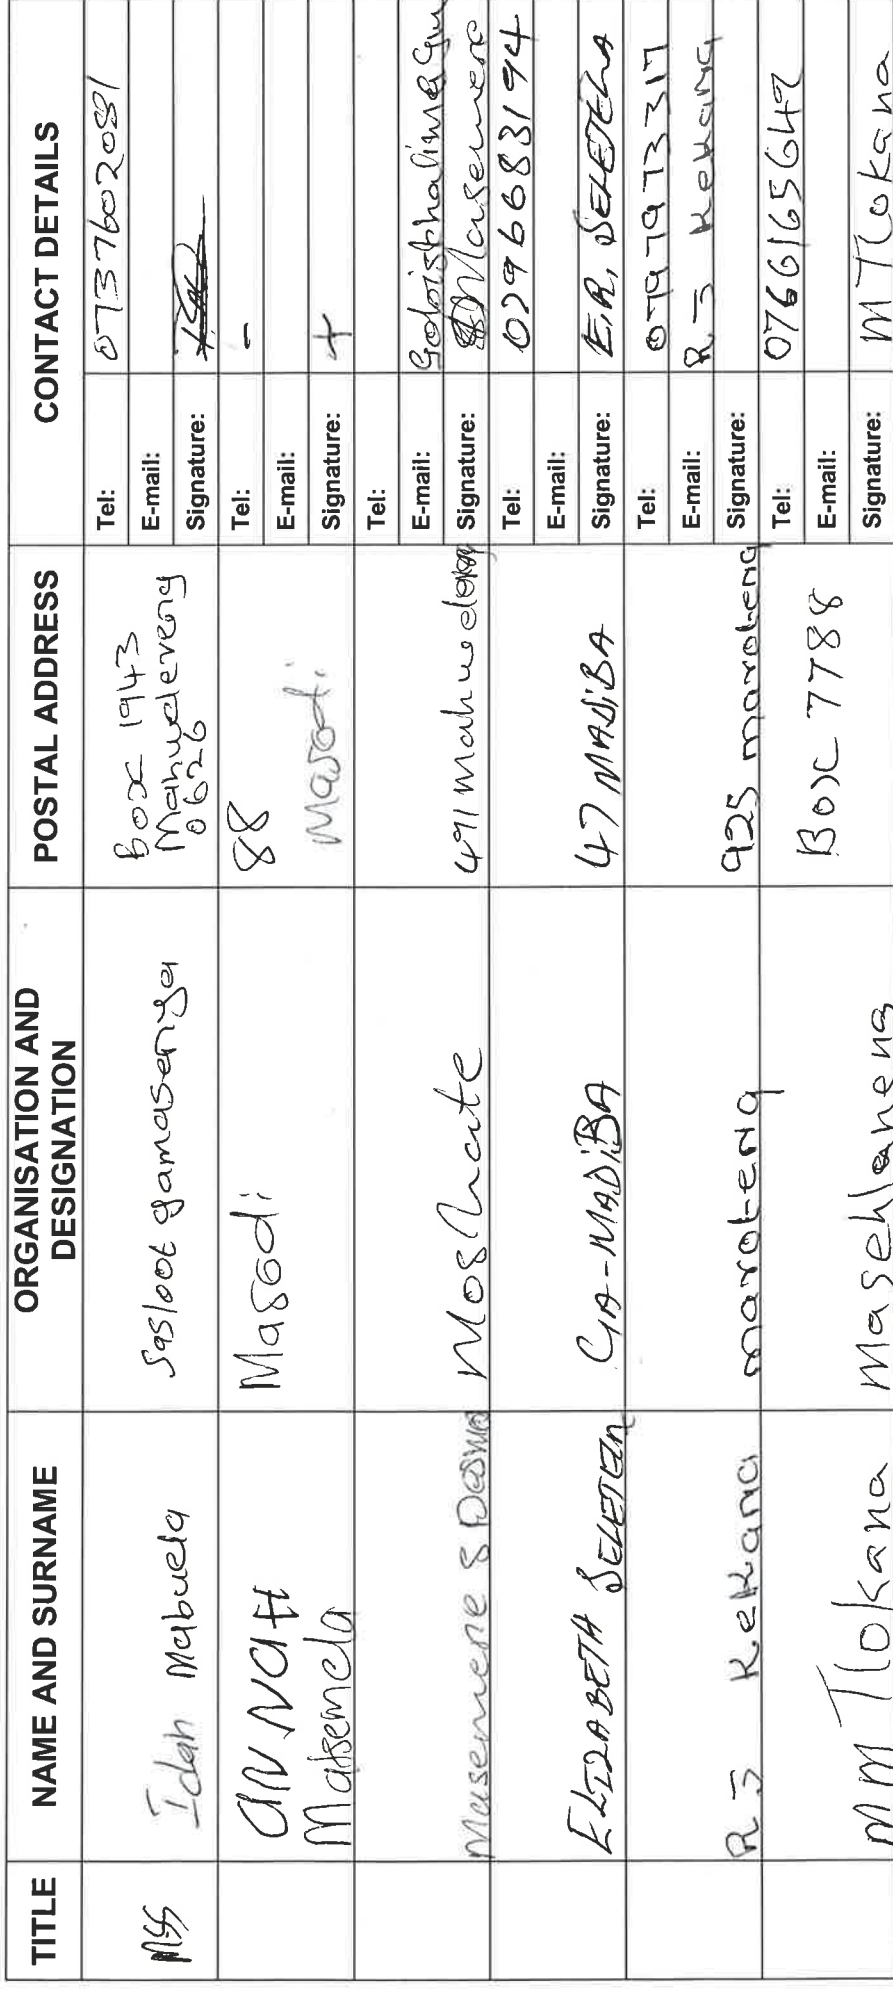 TITLE
NAME AND SURNAME
ORGANISATION AND
DESIGNATION
POSTAL ADDRESS
CONTACT DETAILS
MSS
Idah Mabuela
Sasloot gamasenya
Box 1943
Mahwelereng
0626
Tel: 0737602081
E-mail:
Signature:
ANNAH
Matsemela
Masodi
88
Masodi
Tel: -
E-mail:
Signature: +
Masemene S
Moshate
491 Mahwelereng
Tel:
E-mail:
Signature: Masemene
ELIZABETH SELETELA
GA-MADIBA
47 MADIBA
Tel: 0796683194
E-mail:
Signature: E.R. SELETELA
R J Kekana
maroteng
925 maroteng
Tel: 0797973317
E-mail: R J Kekana
Signature:
MM Tlokana
Masehlaneng
Box 7788
Tel: 0766165642
E-mail:
Signature: M Tlokana